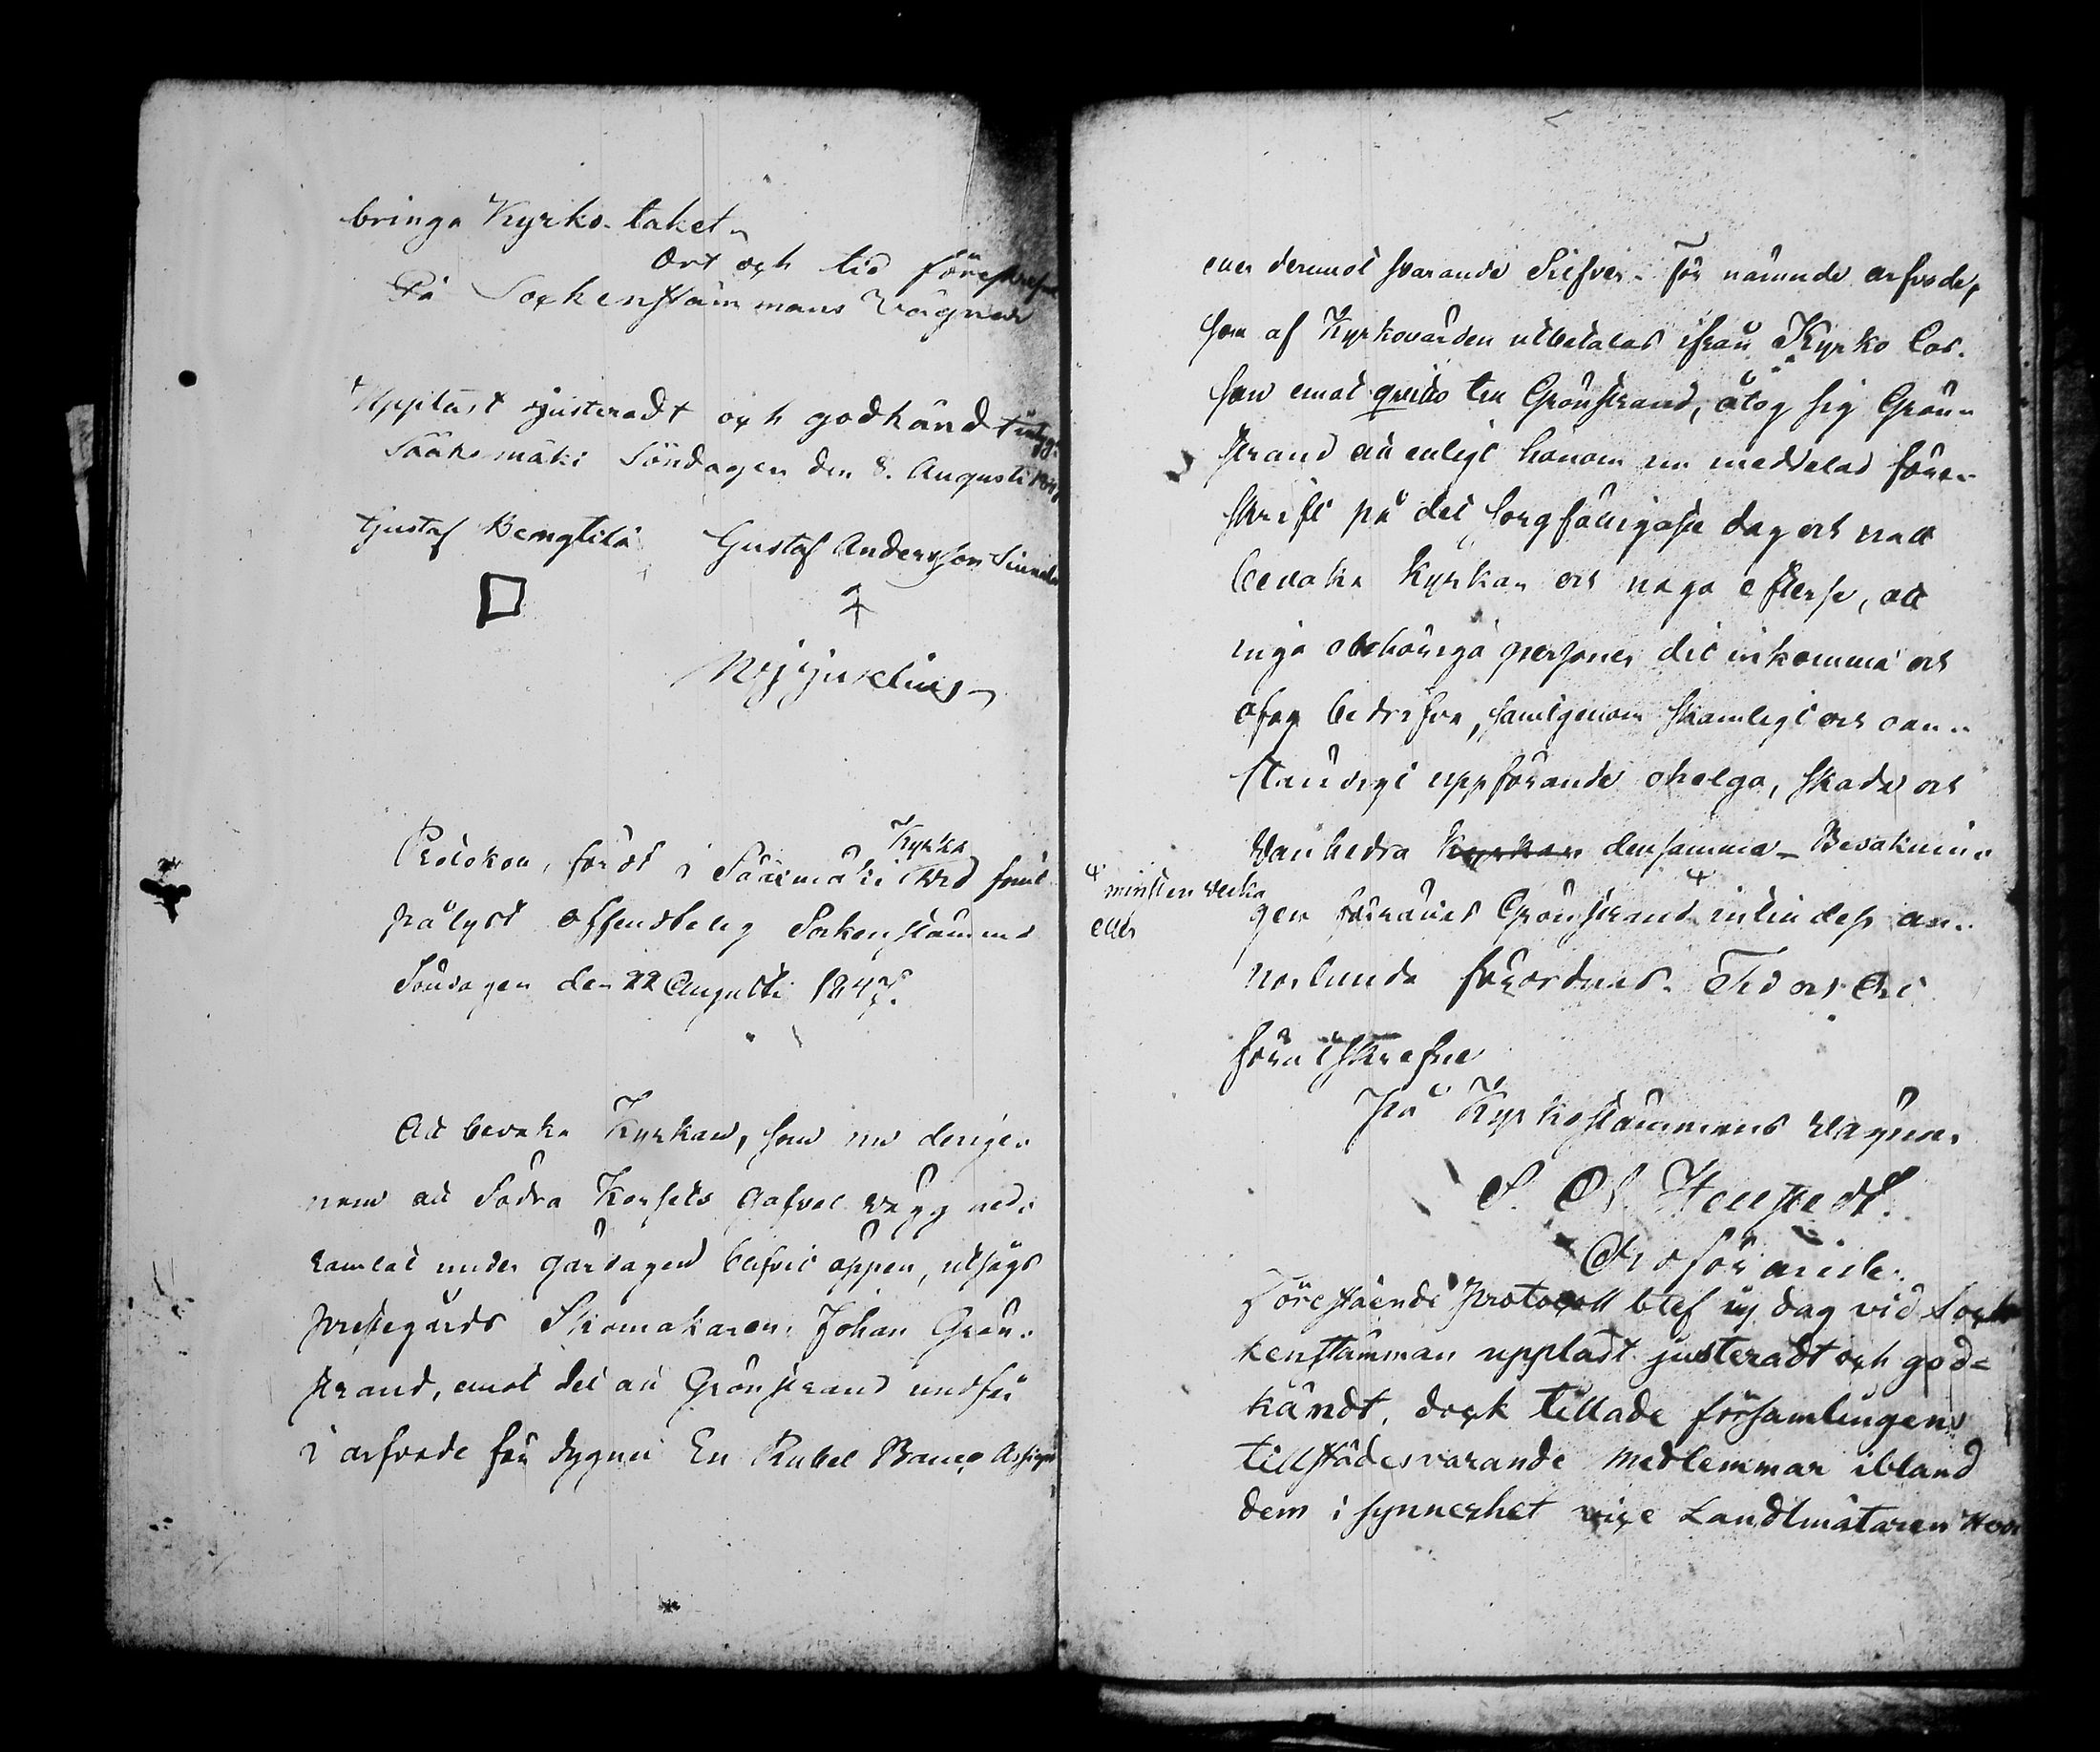 bringa Kyrko-taket.
Ort och tid föreskrefne
På Sockenstämmans Vägnar
Uppläst justeradt och godkändt intyga
Sääksmäki Söndagen den 8. Augusti 1847
Gustaf Bengtilä Gustaf Andersson
Protokoll, fördt i Sääxmäki Kyrka vid
pålyst offendtelig Sockenstämma
Söndagen den 22 Augusti 1847.
Att bevaka Kyrkan, som nu derige-
nom att Södra Korsets Gafvel vägg ned-
ramlat under gårdagen blifvit öppen, utsågs
prestegårds Skomakaren Johan Grön-
strand, emot det att Grönstrand undfår
i arfvode för dygnet En Rubel Banco Assign
eller deremot svarande Silfver. För nämnde arfvode,
som af Kyrkovärden utbetalas ifrån Kyrko Cas-
san emot qvitto till Grönstrand, åtog sig Grön-
strand att enligt honom nu meddelad före-
skrift på det sorgfälligaste dag och natt
bevaka Kyrkan och noga efterse, att
inga obehöriga personer dit inkomma och
ofog bedrifva, samt genom skamligt och oan-
ständigt uppförande ohelga, skada och
vanhedra Kyrkan densamma. Bevaknin-
minsten vecka
eller
gen förrättas Grönstrand intill dess an-
norlunda förordnas. Tid och Ort
förut skrefne
På Kyrkostämmans vägnar
Ordförande.
Förestående protocoll blef i dag vid Soc-
kenstämman uppläst justeradt och god-
kändt, dock tillade församlingens
tillstädesvarande medlemmar ibland
dem i synnerhet vice Landtmätaren